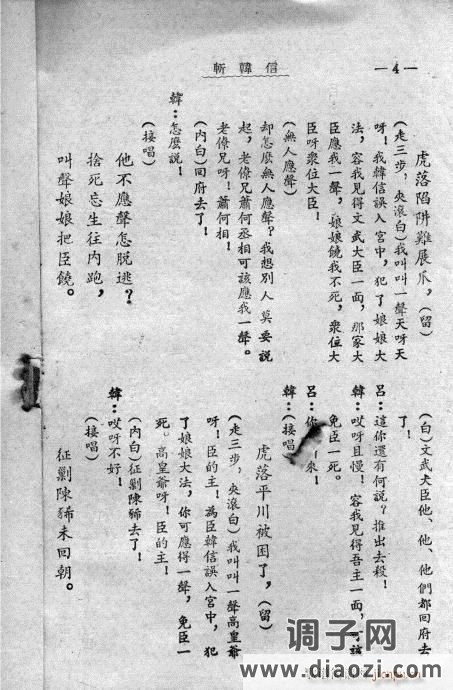 —4—
信韓斬
虎落陷阱難展爪，（留）
（走三步，夾滾白）我叫叫一聲天呀天
呀！我韓信誤入宮中，犯了娘娘大
法，容我見得文武大臣一面，那家大
臣應我一聲，娘娘饒我不死，衆位大
臣呀衆位大臣！
（無人應聲）
却怎麽無人應聲？我想别人莫要説
起，老僚兄蕭何丞相可該應我一聲。
老僚兄呀！蕭何相！
（内白）回府去了！
韓：怎麽説！
（接唱）
他不應聲怎脱逃？
捨死忘生往内跑，
叫聲娘娘把臣饒。
（白）文武大臣他、他、他們都回府去
了！
呂：這你還有何説？推出去殺！
韓：哎呀且慢！容我見得吾主一面，可該
免臣一死。
呂：你 來！
韓：（接唱）
虎落平川被困了，（留）
（走三步，夾滾白）我叫叫一聲高皇爺
呀！臣的主！爲臣韓信誤入宮中，犯
了娘娘大法，你可應得一聲，免臣一
死。高皇爺呀！臣的主！
（内白）征剿陳豨去了！
韓：哎呀不好！
（接唱）
征剿陳豨未回朝。
调子网
www.diaozi.com